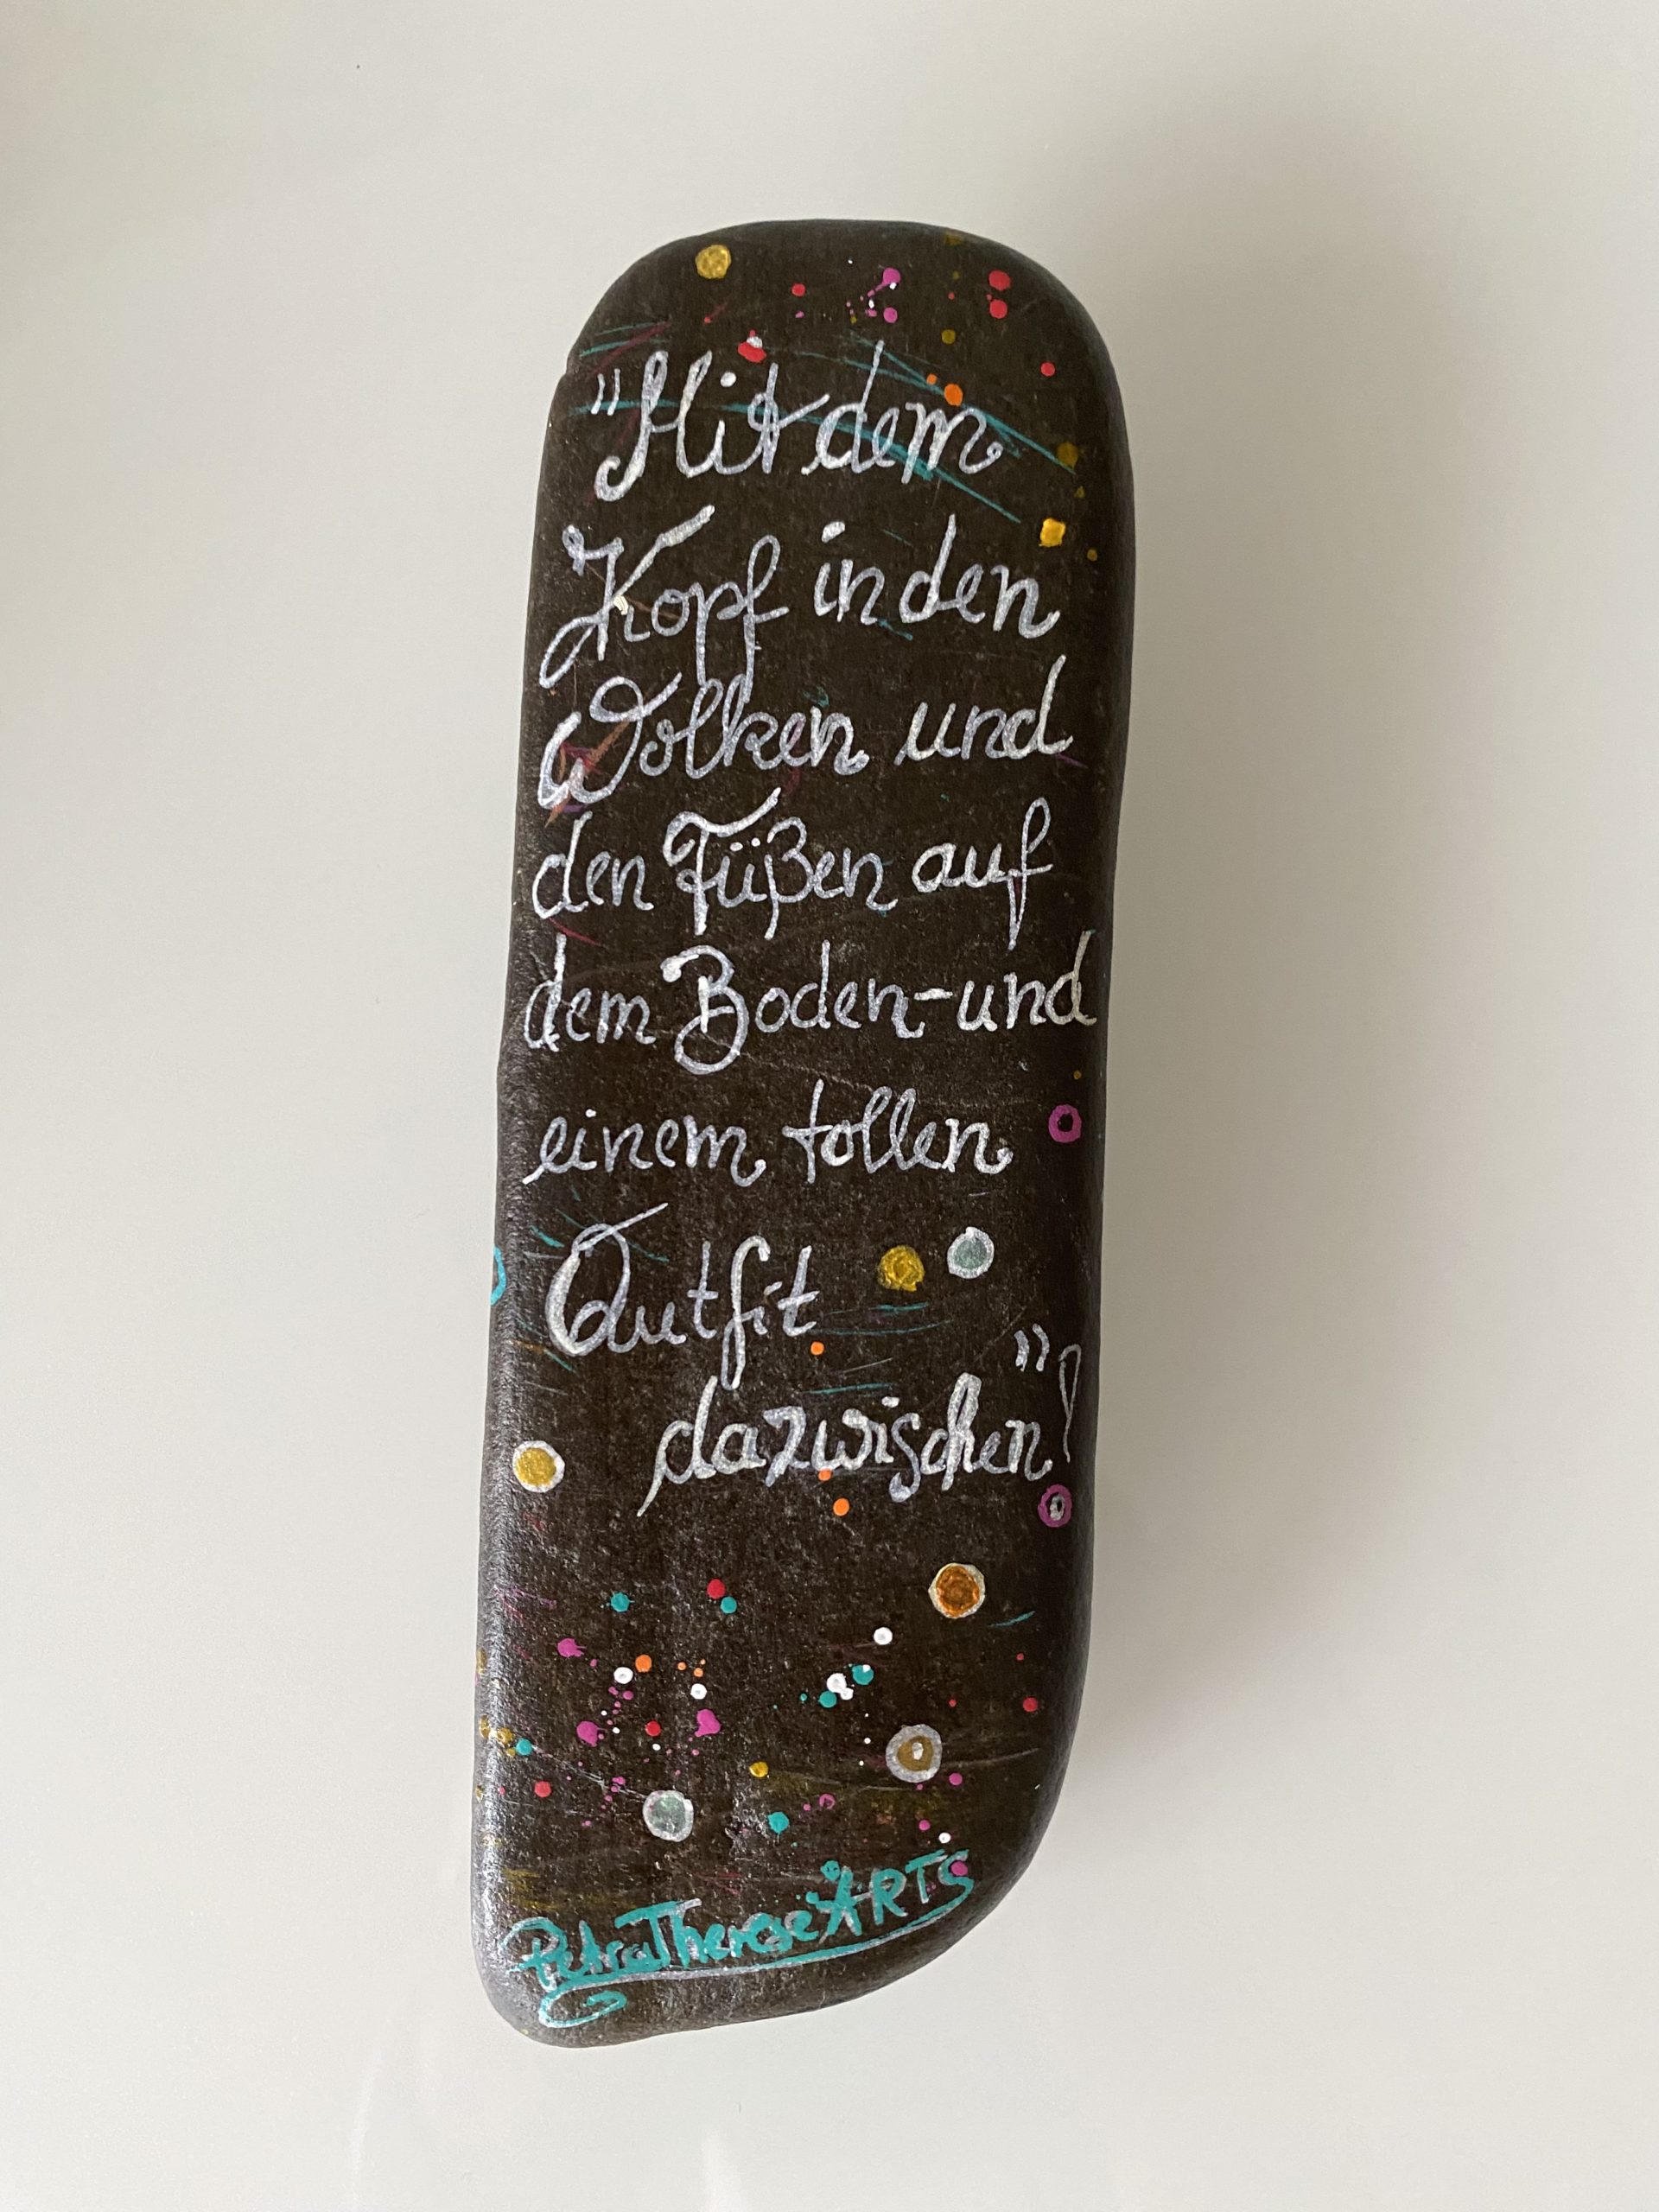 "Mit dem
Kopf in den
Wolken und
den Füßen auf
dem Boden - und
einem tollen
Outfit
dazwischen"!
PetraThereseARTS